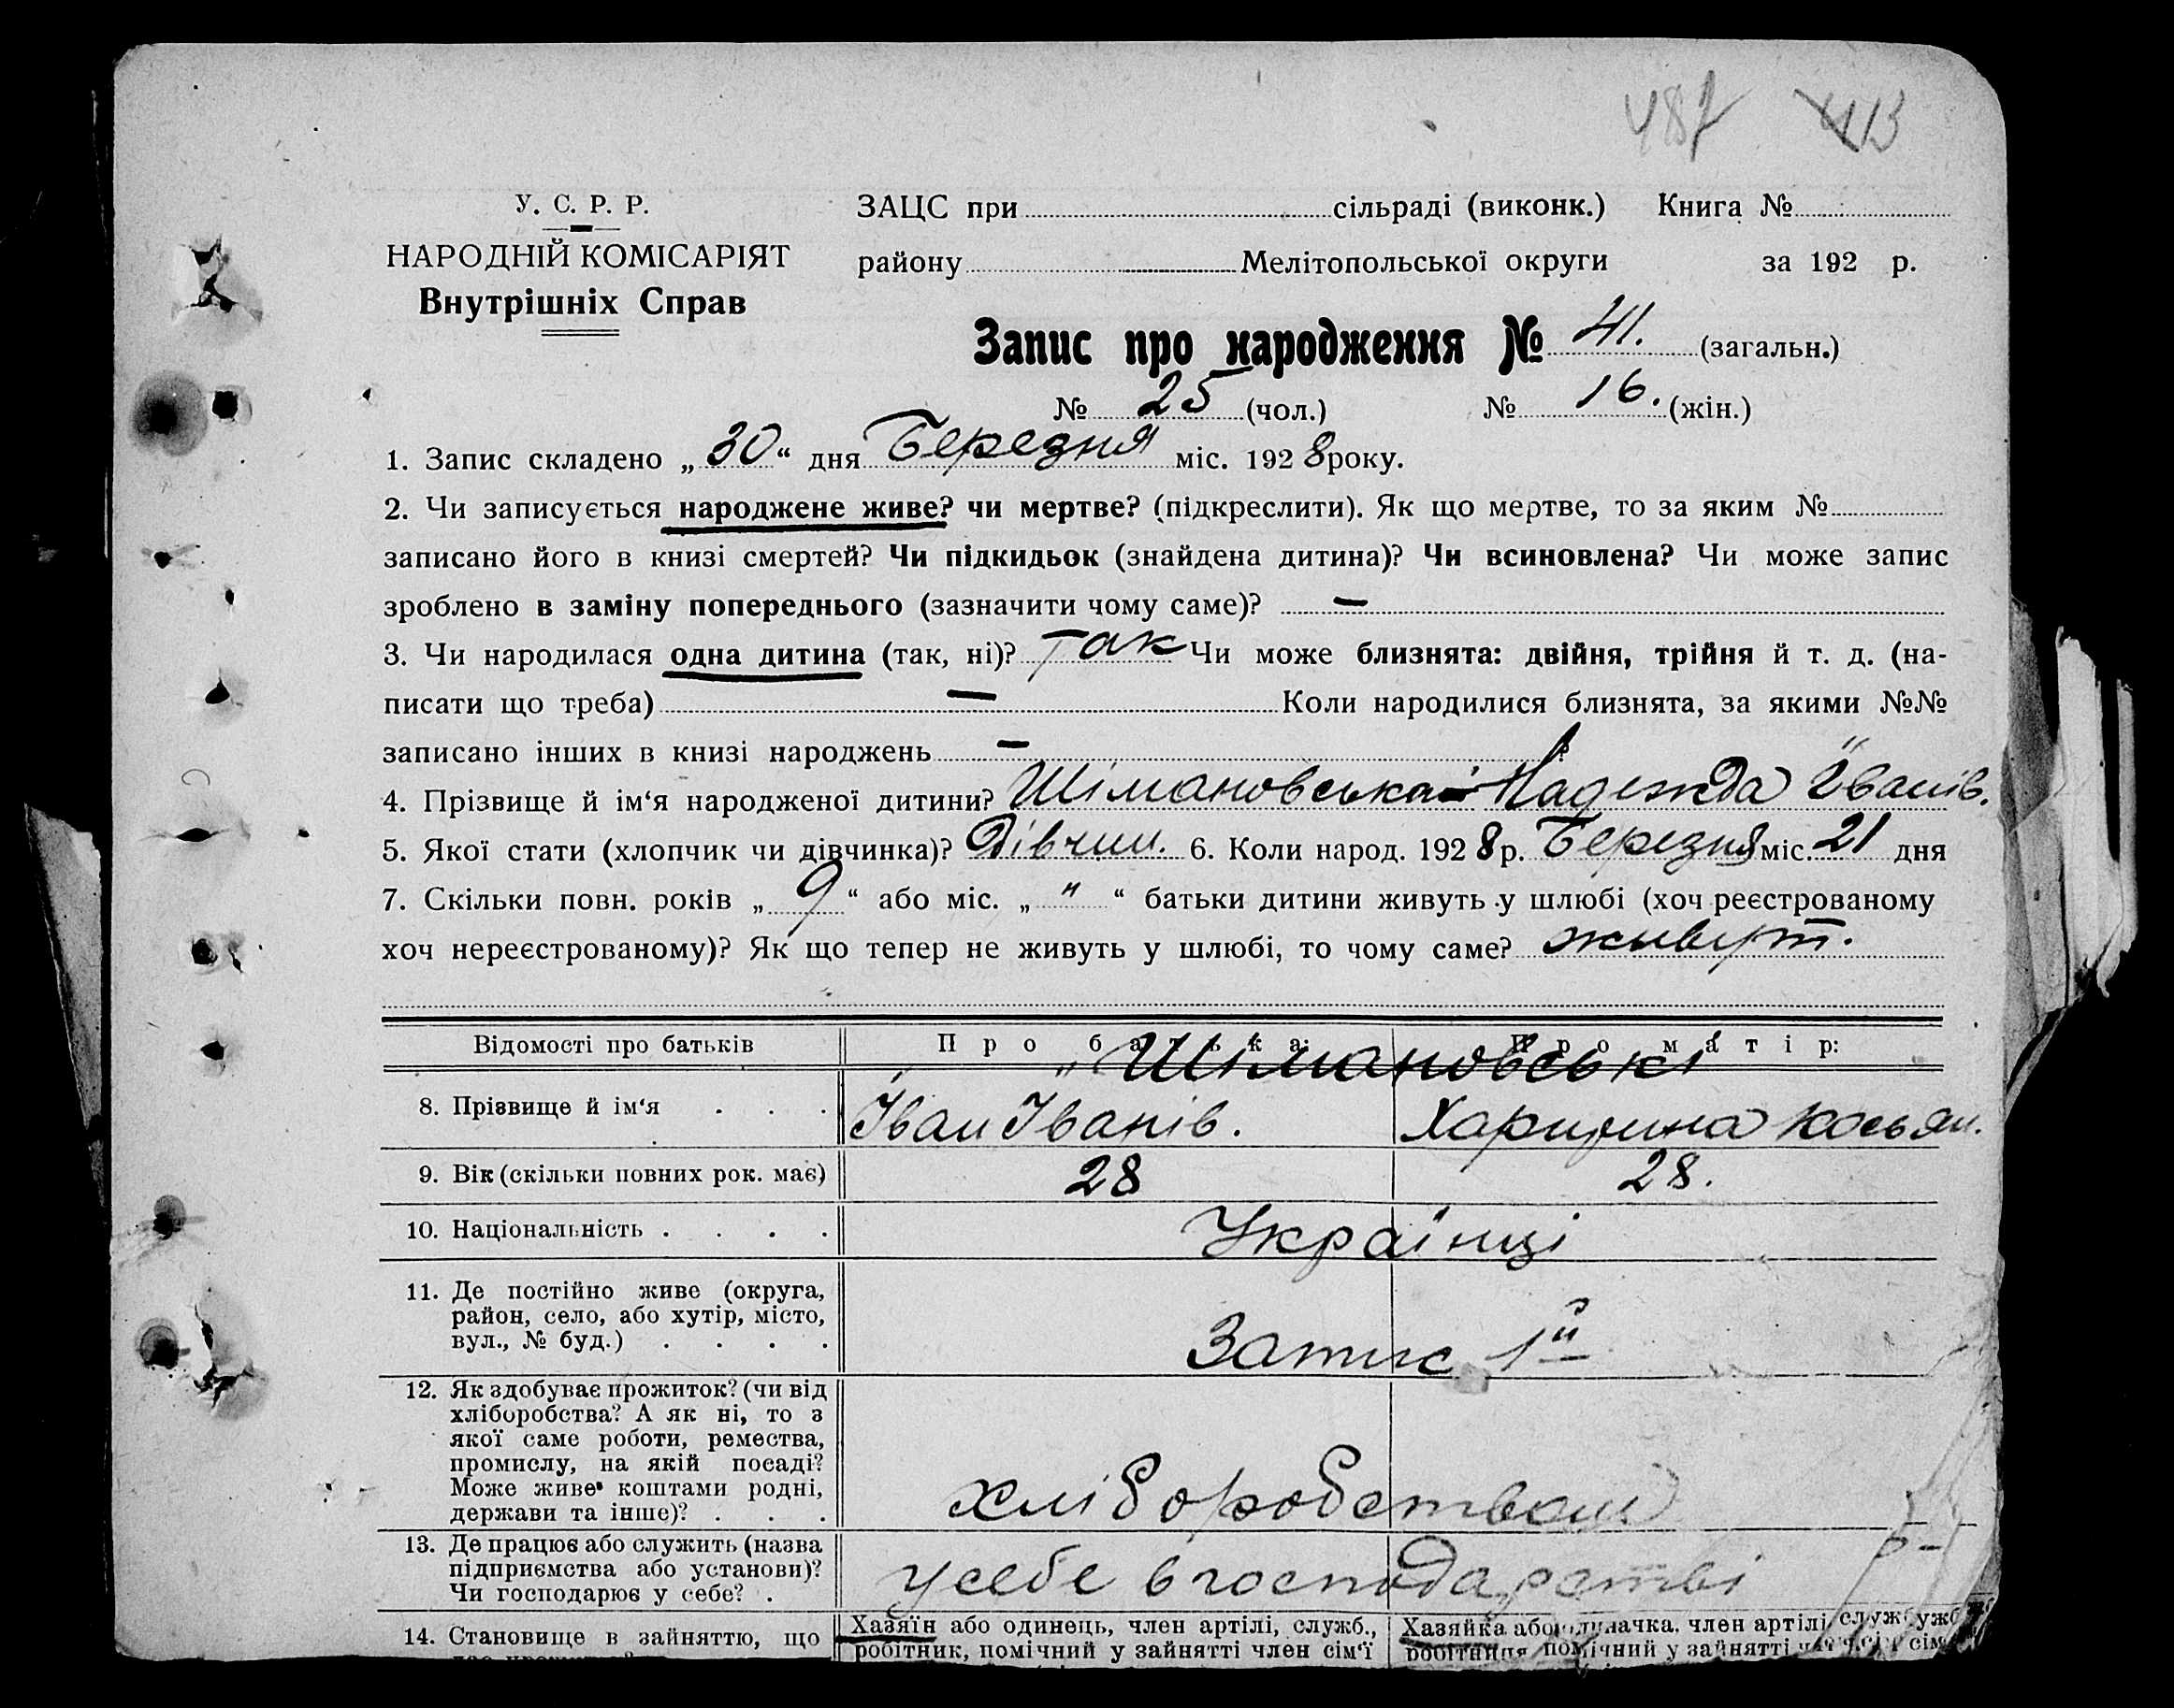 487 413
У. С. Р. Р.
НАРОДНІЙ КОМІСАРІЯТ
Внутрішніх Справ
ЗАЦС при сільраді (виконк.) Книга №
району Мелітопольської округи за 192 р.
Запис про народження № 41. (загальн.)
№ 25 (чол.) № 16. (жін.)
1. Запис складено „ 30 “ дня Березня міс. 192 8 року.
2. Чи записується народжене живе? чи мертве? (підкреслити). Як що мертве, то за яким №
записано його в книзі смертей? Чи підкидьок (знайдена дитина)? Чи всиновлена? Чи може запис
зроблено в заміну попереднього (зазначити чому саме)? —
3. Чи народилася одна дитина (так, ні)? Так Чи може близнята: двійня, трійня й т. д. (на-
писати що треба) — Коли народилися близнята, за якими №№
записано інших в книзі народжень —
4. Прізвище й ім‘я народженої дитини? Шімановська Надежда Іванів.
5. Якої стати (хлопчик чи дівчинка)? Дівчин. 6. Коли народ. 192 8 р. Березня міс. 21 дня
7. Скільки повн. років „ 9 “ або міс. „ " “ батьки дитини живуть у шлюбі (хоч реєстрованому
хоч нереєстрованому)? Як що тепер не живуть у шлюбі, то чому саме? живут.
Відомості про батьків Про батька: Про матір:
Шімановські
8. Прізвище й ім‘я . . . Іван Іванів. Харитина Косьян.
9. Вік (скільки повних рок. має) 28 28.
10. Національність . . . . Українці
11. Де постійно живе (округа,
район, село, або хутір, місто,
вул., № буд.) . . . . Запис 1й
12. Як здобуває прожиток? (чи від
хліборобства? А як ні, то з
якої саме роботи, ремества,
промислу, на якій посаді?
Може живе коштами родні,
держави та інше)? . . . хліборобством
13. Де працює або служить (назва
підприємства або установи)?
Чи господарює у себе? . у себе в господарстві
14. Становище в зайняттю, що
Хазяїн або одинець, член артілі, служб.,
робітник, помічний у зайнятті член сім‘ї
Хазяйка або одиначка, член артілі, служб
робітниця, помічний у зайнятті